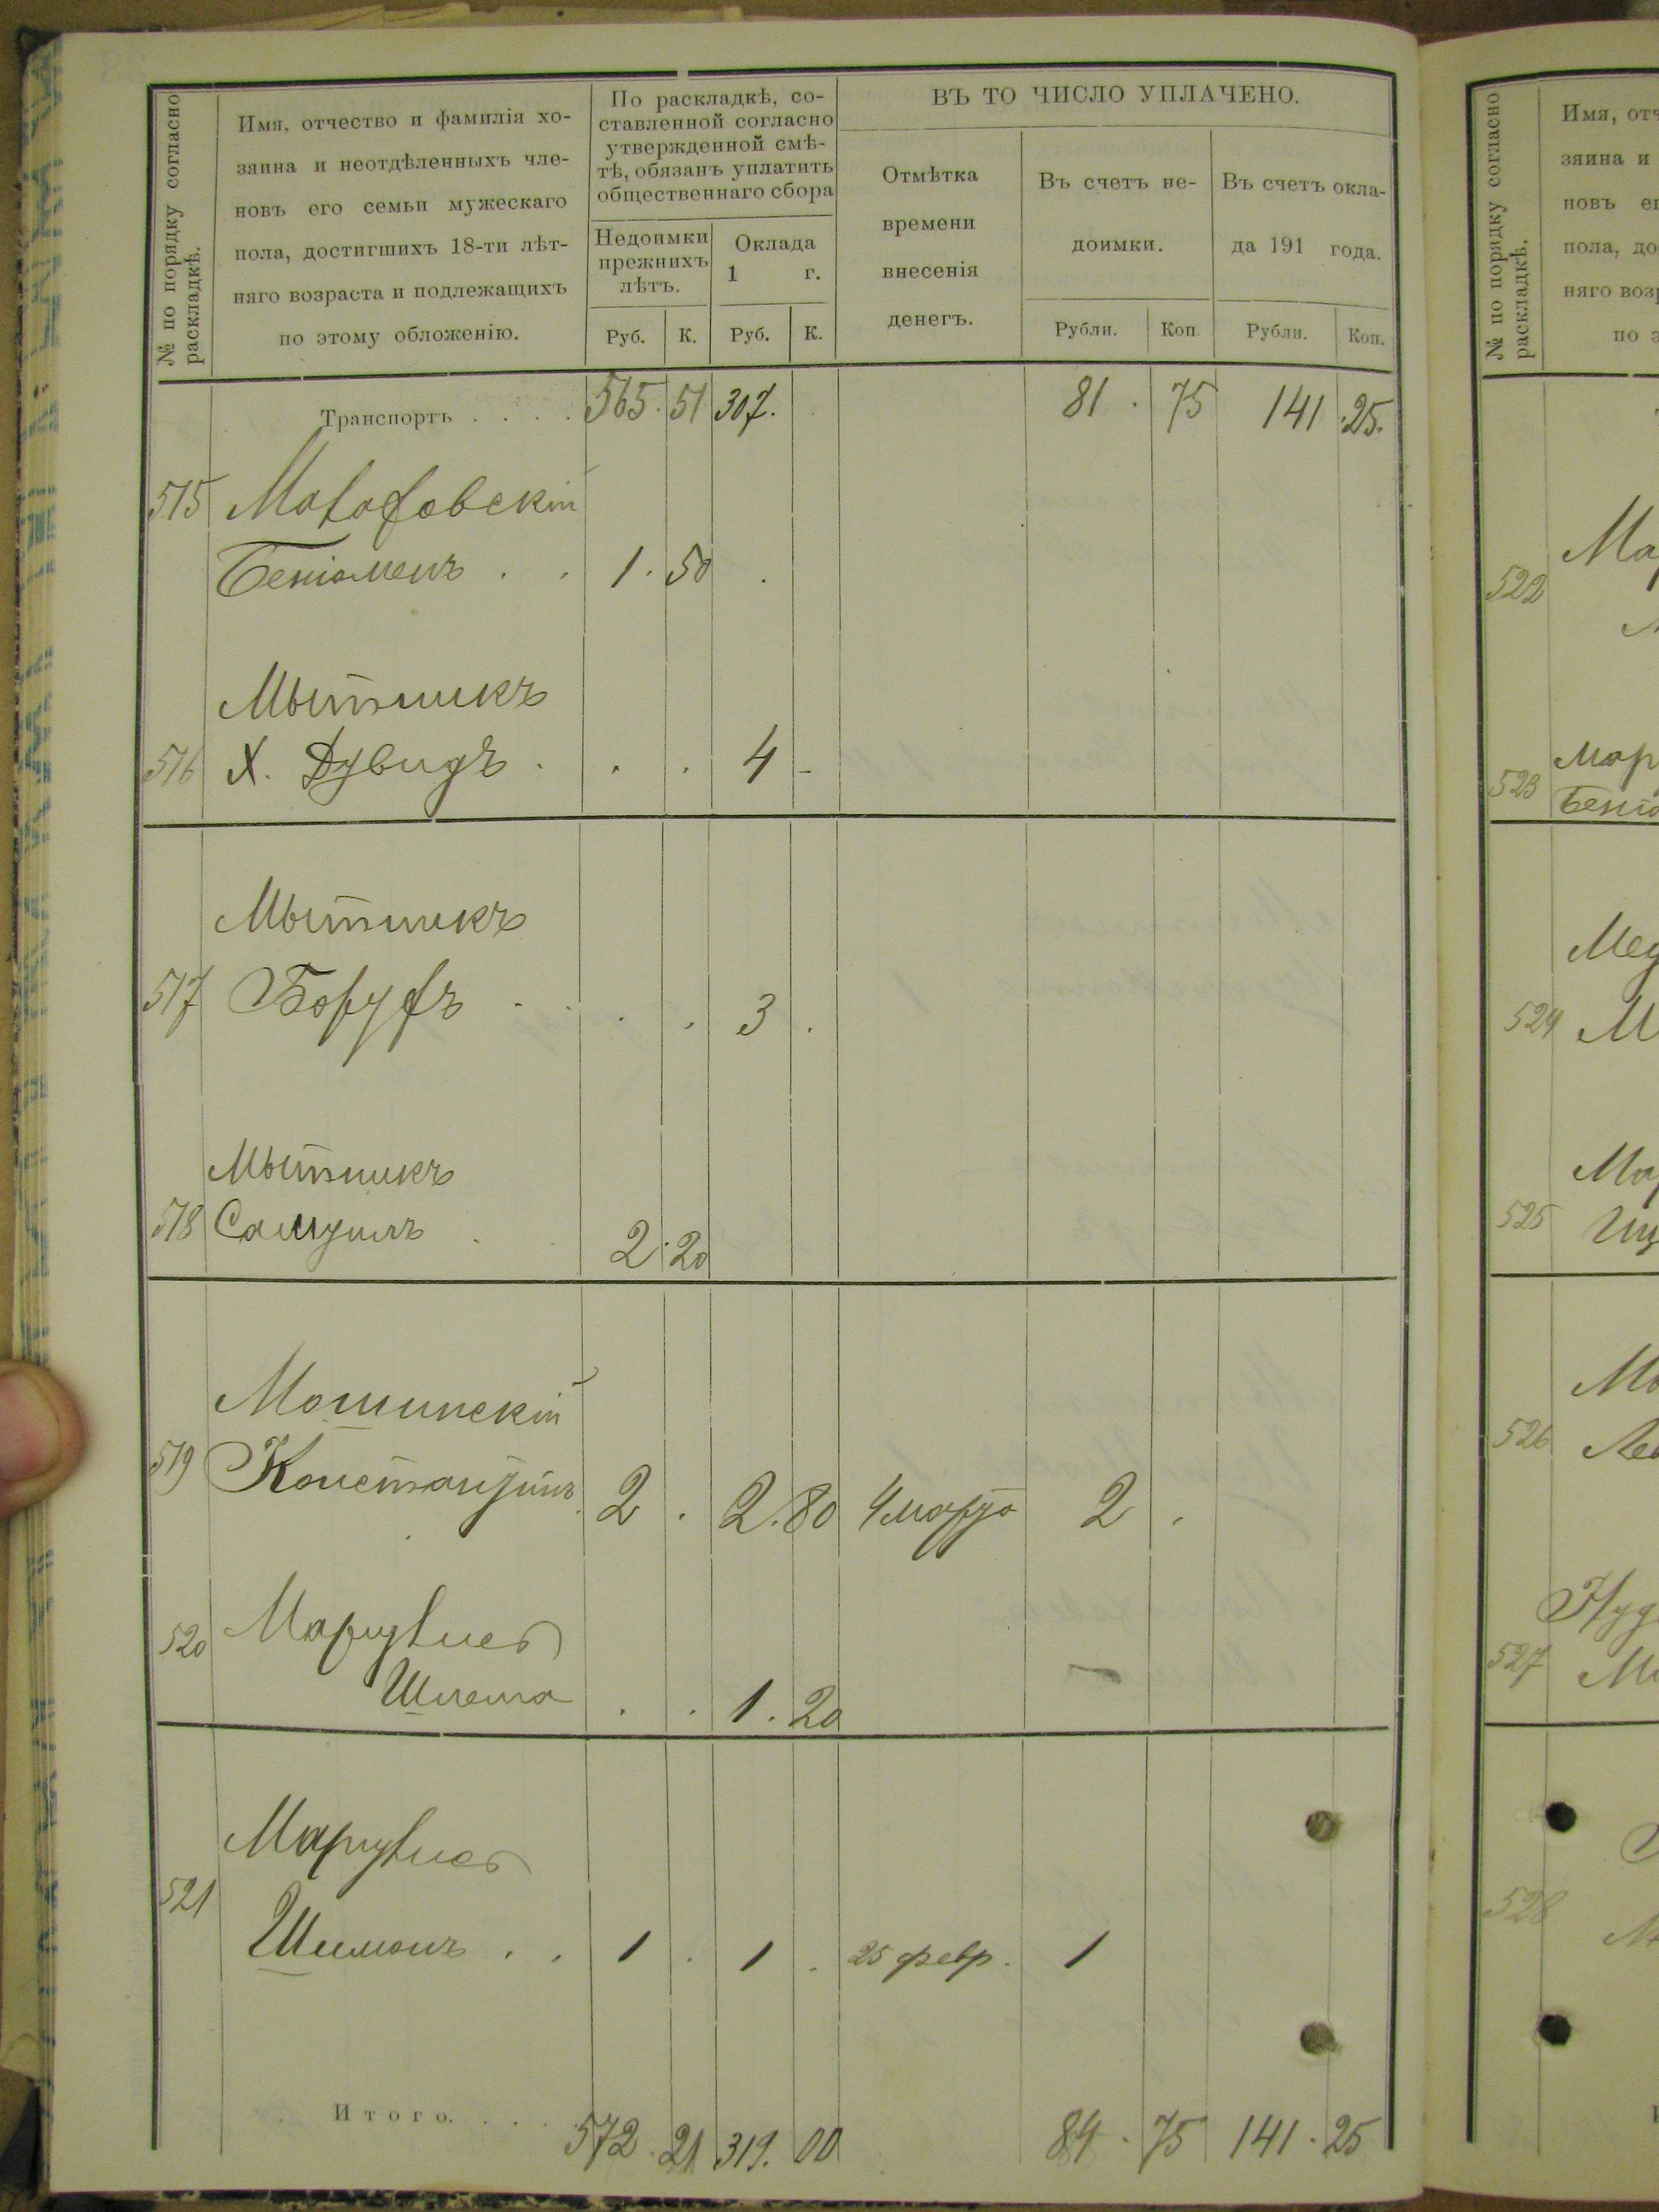 № по порядку согласно раскладкѣ.
Имя, отчество и фамилія хо-
зяина и неотдѣленныхъ чле-
новъ его семьи мужескаго
пола, достигшихъ 18-ти лѣт-
няго возраста и подлежащихъ
по этому обложенію.
По раскладкѣ, со-
ставленной согласно
утвержденной смѣ-
тѣ, обязанъ уплатить
общественнаго сбора
Недоимки
прежнихъ
лѣтъ.
Оклада
1 г.
Руб. К. Руб. К.
ВЪ ТО ЧИСЛО УПЛАЧЕНО.
Отмѣтка
времени
внесенія
денегъ.
Въ счетъ не-
доимки.
Въ счетъ окла-
да 191 года.
Рубли. Коп. Рубли. Коп.
Транспортъ . . . . 565. 51 307. 81. 75 141.25.
515
Беніоменъ . . 1. 50 .
Мытникъ
516 Х. Дувидъ . . . 4 -
Мытникъ
517 Борухъ . . . . 3 .
Мытникъ
518 Самуилъ . . 2.20
Мошинскій
519 Константинъ 2 . 2.80 4 марта 2 .
520
Шлема . . 1.20
521
Шимонъ . . 1 . 1 . 25 февр. 1
Итого. . . . 572. 21 319. 00 84. 75 141. 25
№ по порядку согласно раскладкѣ.
Имя, отч
зяина и
новъ ег
пола, до
няго возр
по э
522 Ма
523 Мар
Бенiо
524 М
525 Иц
526
527
528